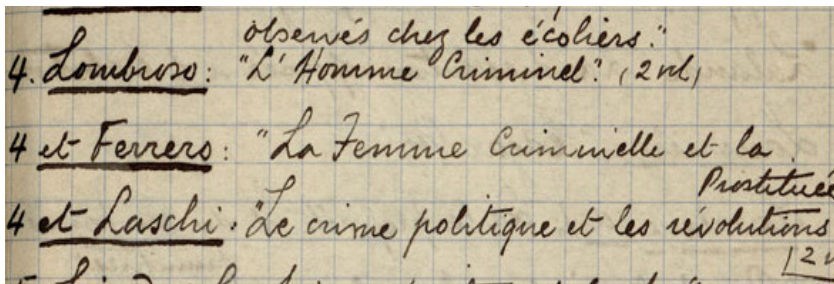 observés chez les écoliers."
4. Lombroso: "L'Homme Criminel". (2 vol)
4 et Ferrero: "La Femme Criminelle et la
Prostituée
4 et Laschi: "Le crime politique et les révolutions
(2 v